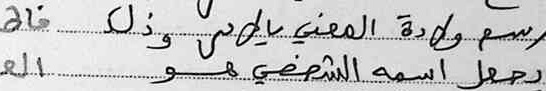 رسم ولادة المعني بالامر وذلك
يجعل اسمه الشخصي هو